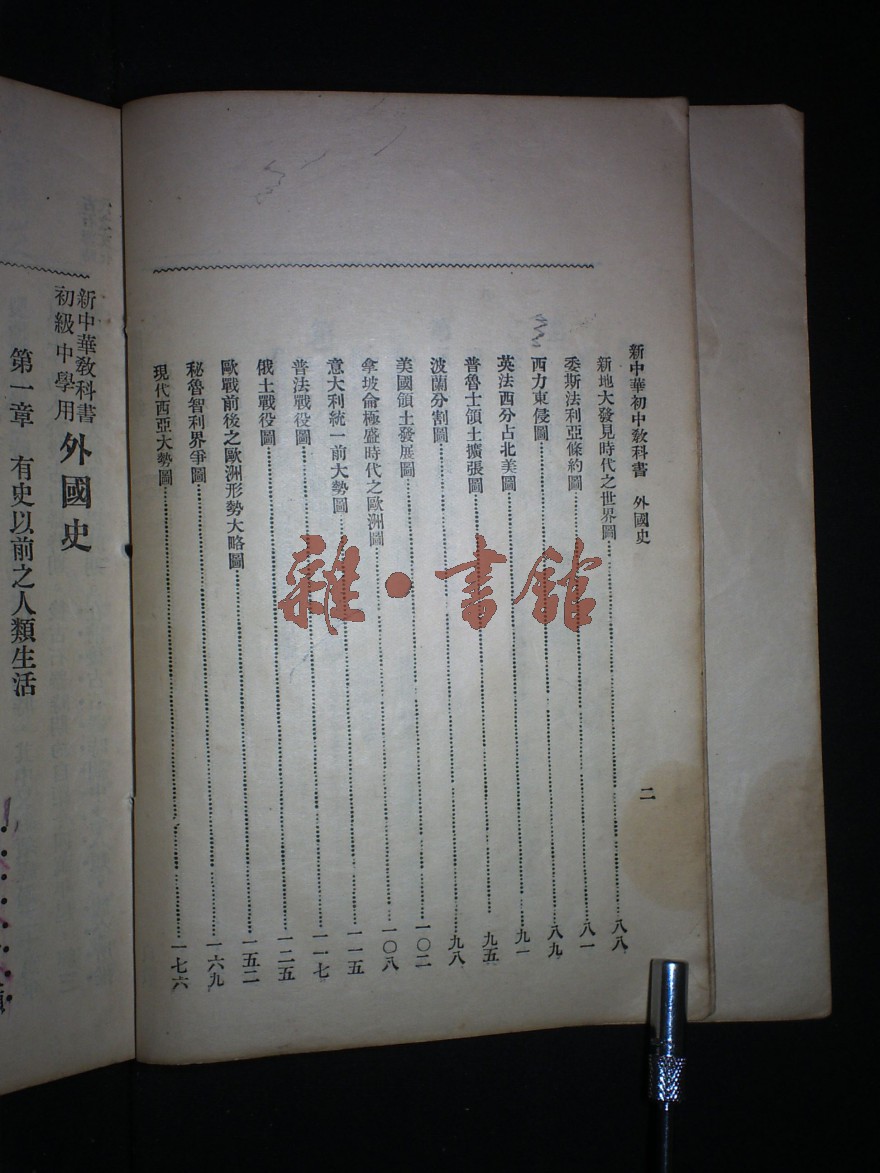 新中華初中教科書　外國史
二
新地大發見時代之世界圖……八八
委斯法利亞條約圖……八一
西力東侵圖……八九
英法西分占北美圖……九一
普魯士領土擴張圖……九五
波蘭分割圖……九八
美國領土發展圖……一〇二
拿坡侖極盛時代之歐洲圖……一〇八
意大利統一前大勢圖……一一五
普法戰役圖……一一七
俄土戰役圖……一二五
歐戰前後之歐洲形勢大略圖……一五二
秘魯智利界爭圖……一六九
現代西亞大勢圖……一七六
新中華教科書
初級中學用
外國史
第一章　有史以前之人類生活
雜·書館